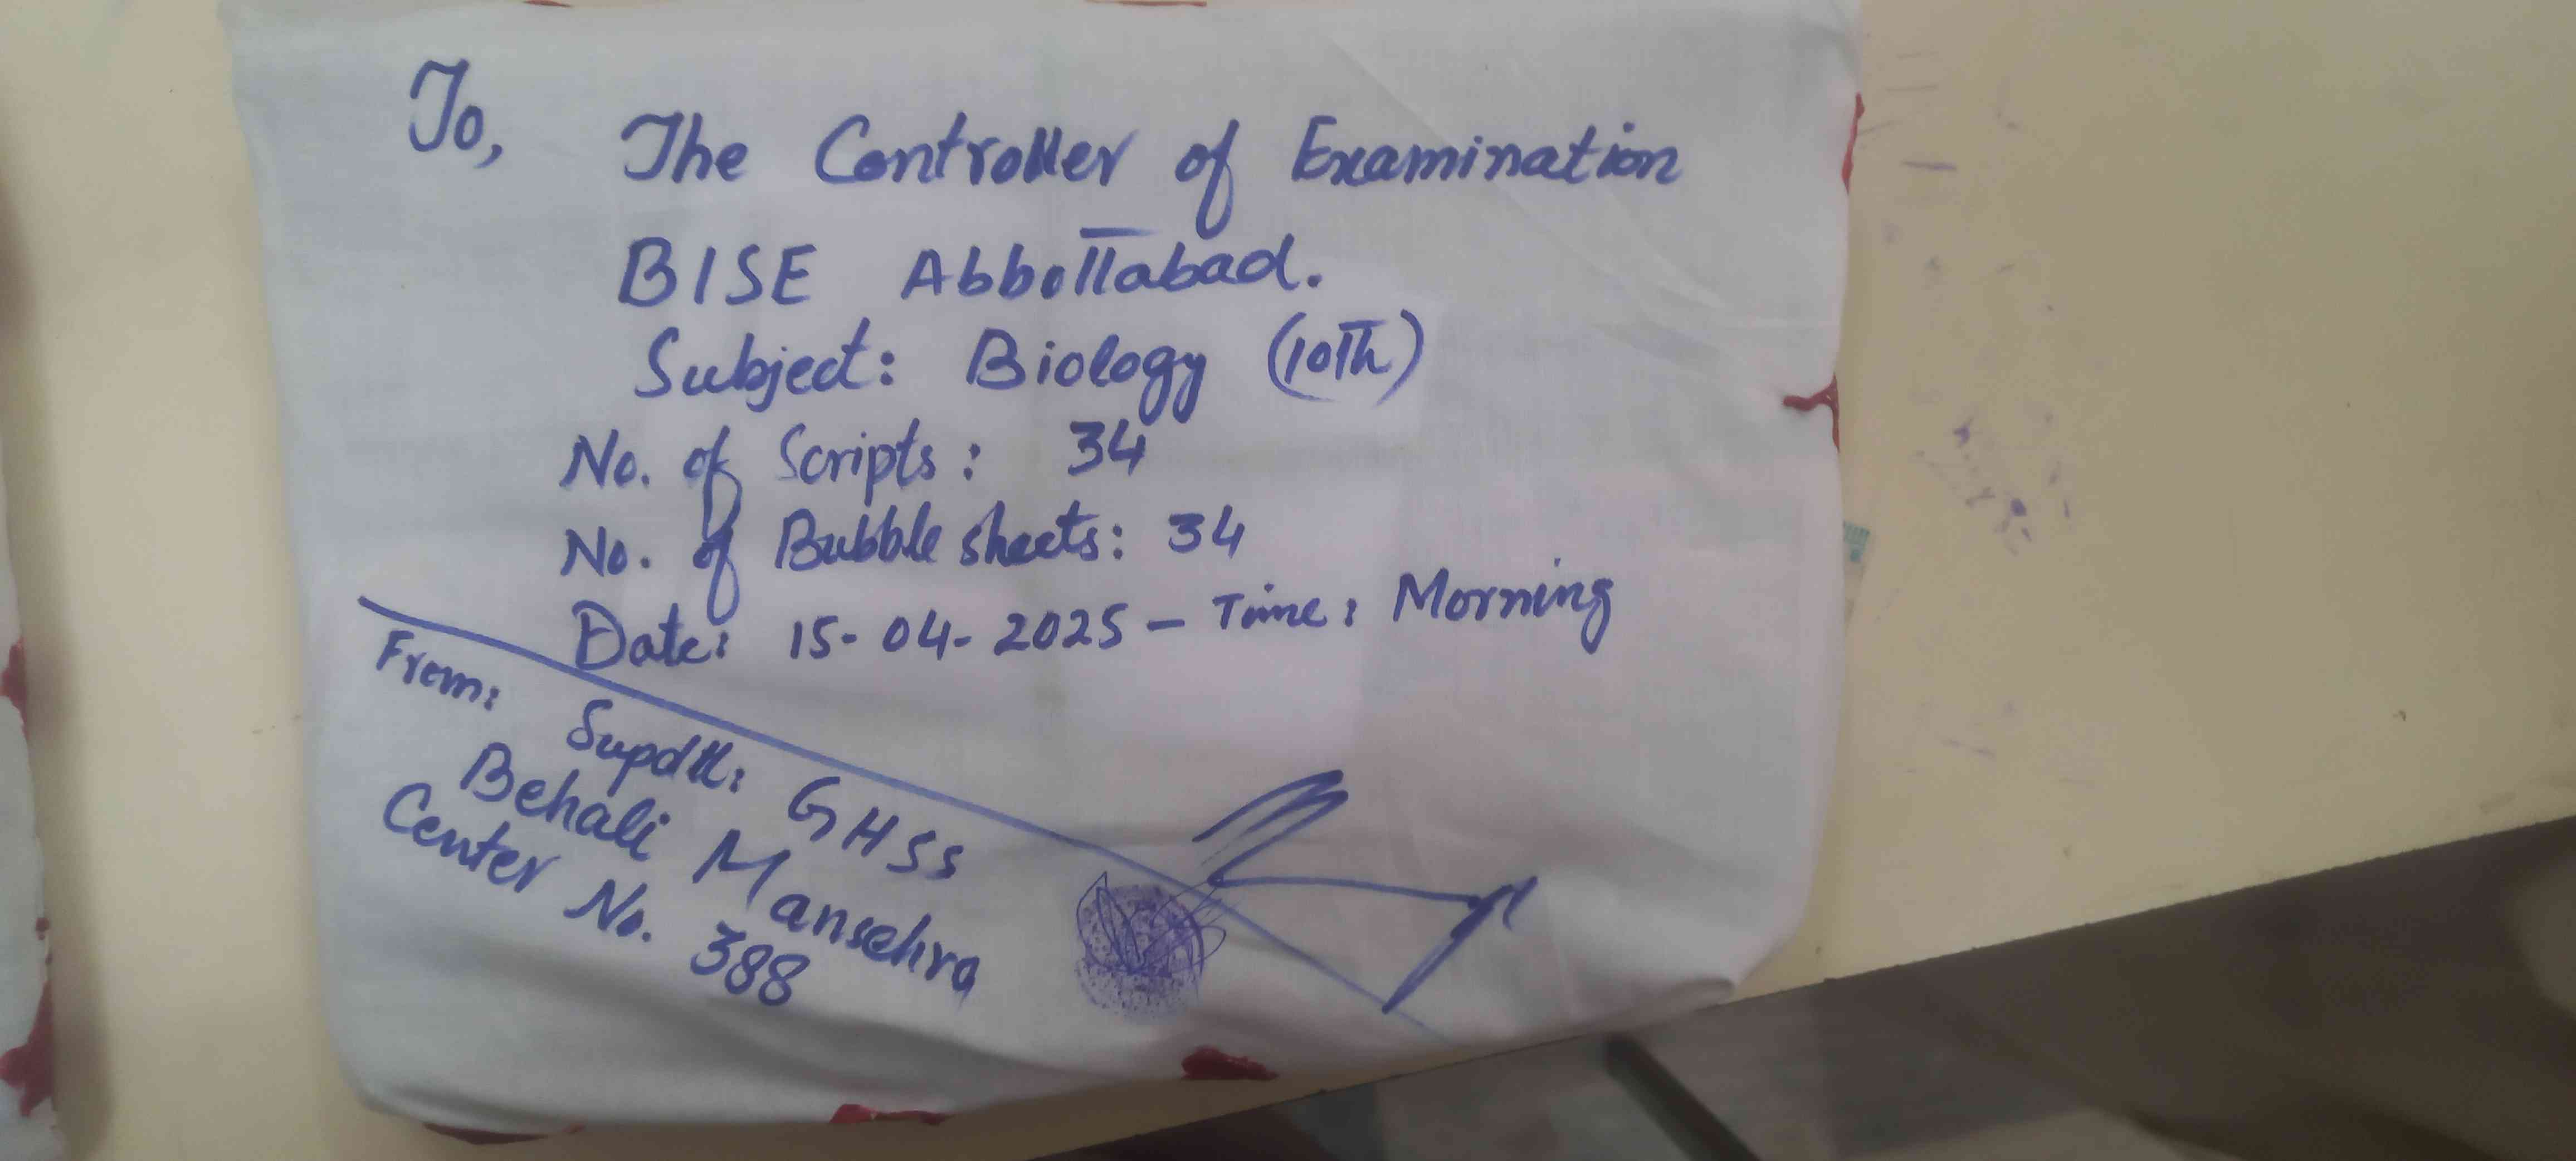 To,
The Controller of Examination
BISE Abbottabad.
Subject: Biology (10th)
No. of Scripts: 34
No. of Bubble sheets: 34
Date: 15-04-2025 - Time: Morning
From: Supdtt: GHSS
Behali Mansehra
Center No. 388